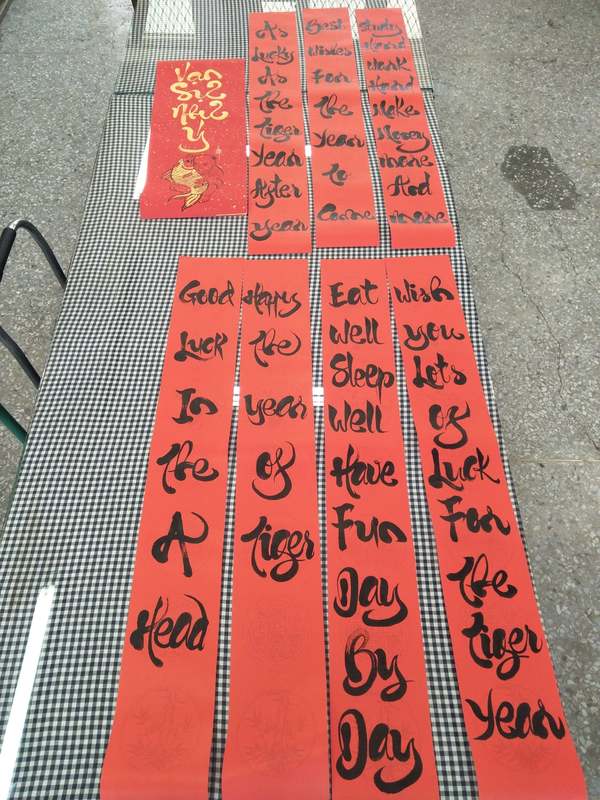 Vạn
Sự
Như
Ý
As
Lucky
As
the
tiger
year
After
year
Best
Wishes
For
the
year
to
Come
Study
Hard
Work
Hard
Make
Money
more
And
more
Good
Luck
In
the
A
Head
Happy
the
year
of
tiger
Eat
Well
Sleep
Well
Have
Fun
Day
By
Day
Wish
you
Lots
of
Luck
For
the
tiger
year